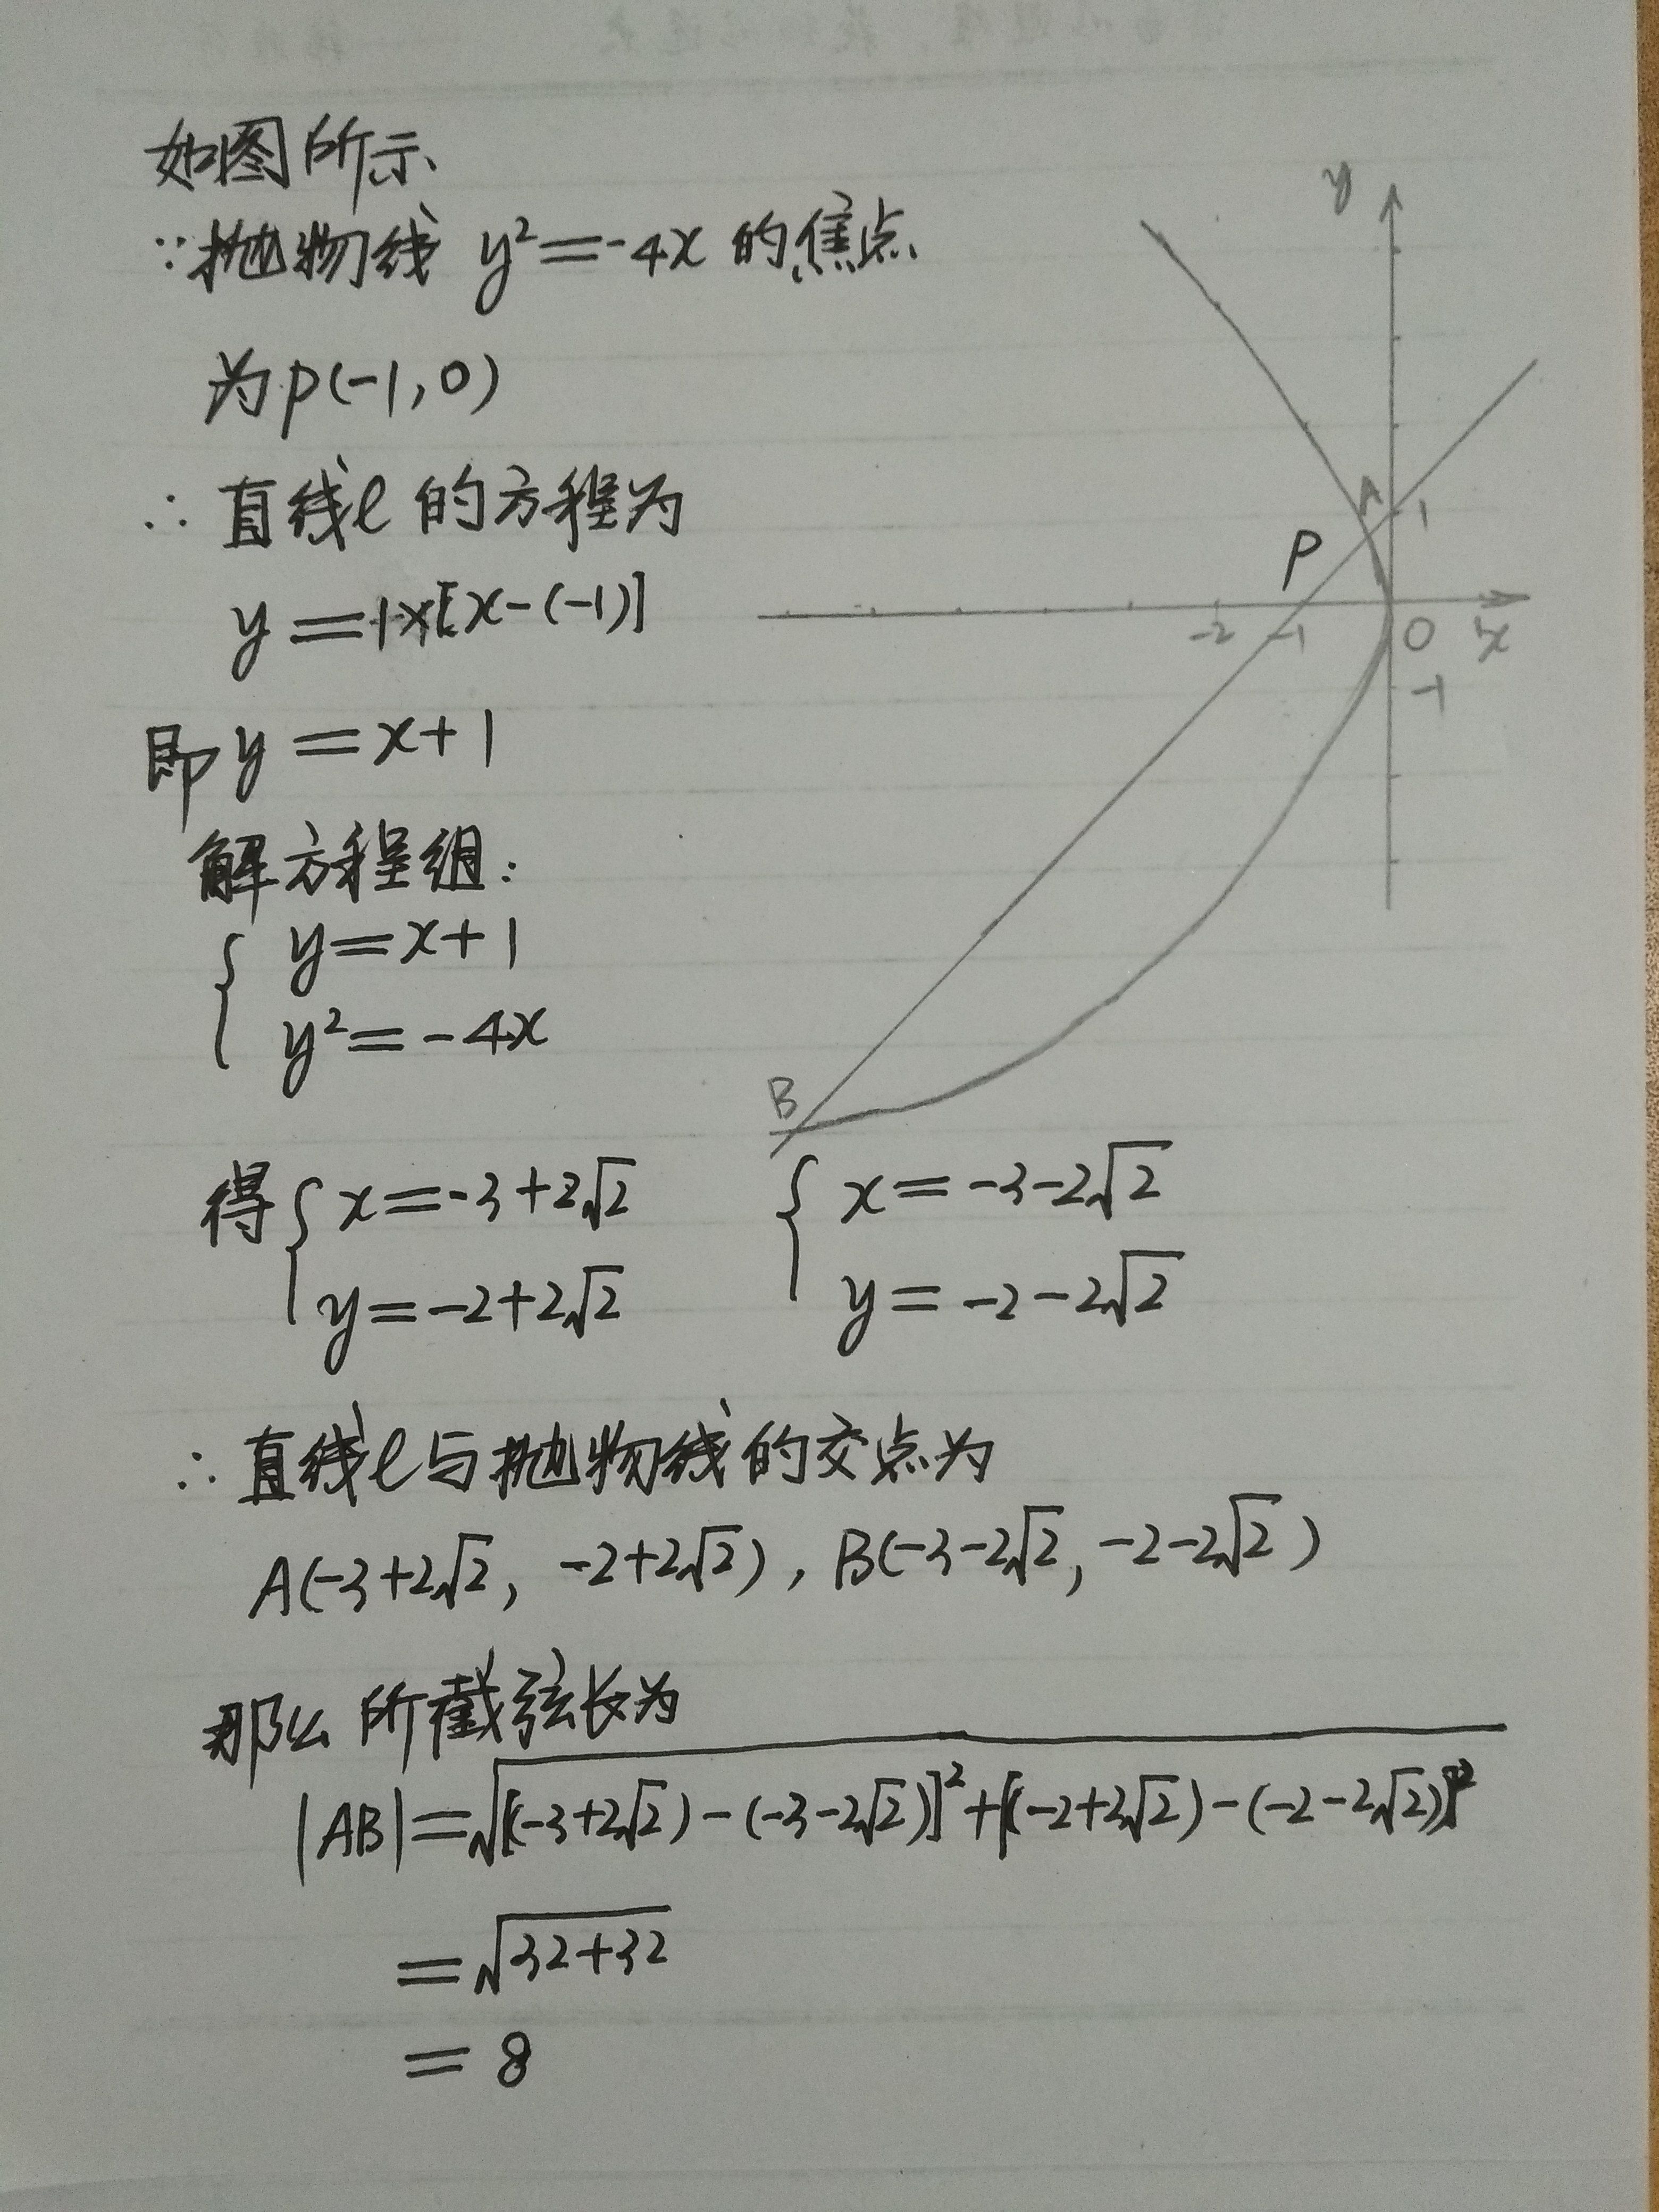 如图所示、
∵抛物线 y²=-4x 的焦点
为P(-1,0)
∴直线l的方程为
y=1×[x-(-1)]
即y=x+1
解方程组:
{ y=x+1
y²=-4x
得{ x=-3+2√2
y=-2+2√2
{ x=-3-2√2
y=-2-2√2
∴直线l与抛物线的交点为
A(-3+2√2, -2+2√2), B(-3-2√2, -2-2√2)
那么所截弦长为
|AB|=√[(-3+2√2)-(-3-2√2)]²+[(-2+2√2)-(-2-2√2)]²
=√32+32
=8
y
A
1
P
-2 -1 0 x
-1
B